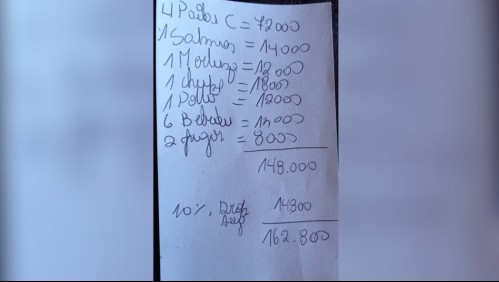 4 Pailas C = 72000
1 Salmon = 14000
1 Merluza = 12000
1 chupe = 18000
1 Pollo = 12000
6 Bebidas = 12000
2 jugos = 8000
148.000
10% Prop 14800
Sug
162.800